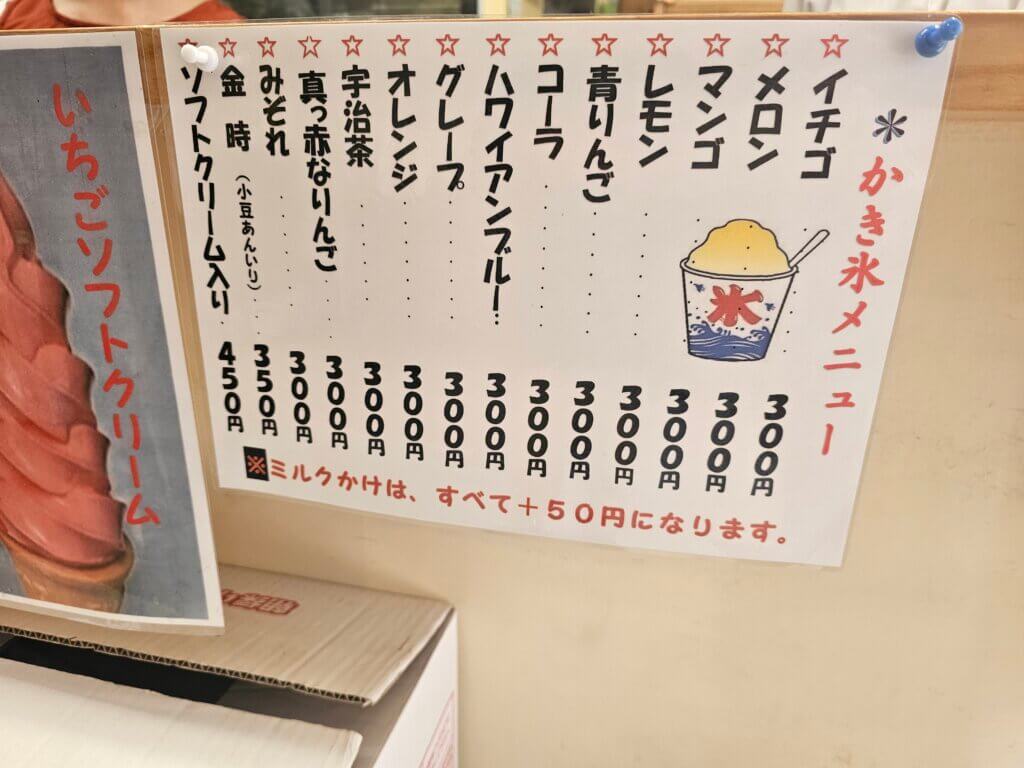 *かき氷メニュー
☆イチゴ 300円
☆メロン 300円
☆マンゴ 300円
☆レモン 300円
☆青りんご 300円
☆コーラ 300円
☆ハワイアンブルー 300円
☆グレープ 300円
☆オレンジ 300円
☆宇治茶 300円
☆真っ赤なりんご 300円
☆みぞれ 300円
☆金時(小豆あんいり) 350円
☆ソフトクリーム入り 450円
※ミルクかけは、すべて+50円になります。
氷
いちごソフトクリーム